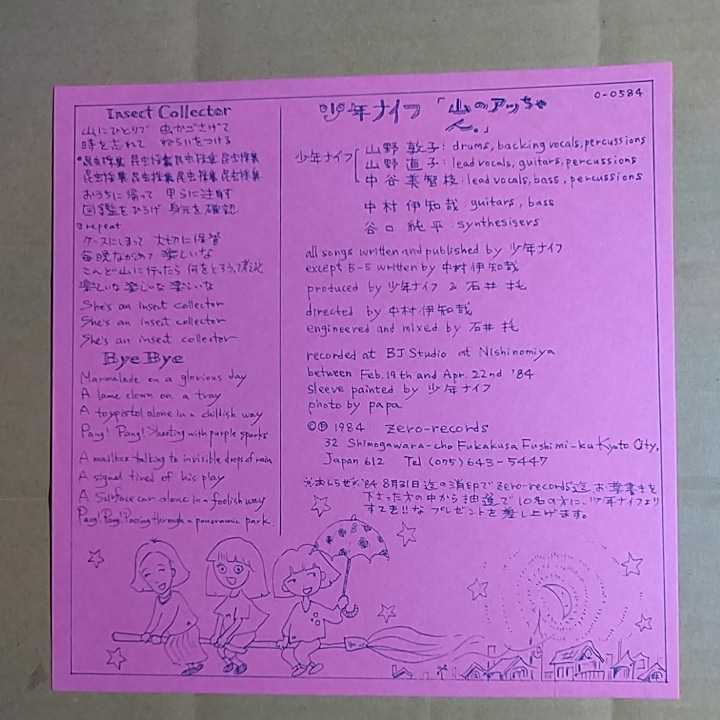 Insect Collector
山にひとりで 虫かごさげて
時を忘れて ねらいをつける
昆虫採集 昆虫採集 昆虫採集 昆虫採集
昆虫採集 昆虫採集 昆虫採集 昆虫採集
おうちに帰って 甲らに注射
図鑑をひろげ 身元を確認
repeat
ケースにしまって 大切に保管
毎晩ながめて 楽しいな
こんど山に行ったら 何をとろうって
楽しいな 楽しいな 楽しいな
She's an insect collector
She's an insect collector
She's an insect collector
Bye Bye
Marmalade on a glorious day
A lame clown on a tray
A toypistol alone in a childish way
Pang! Pang! Shooting with purple sparks
A mailbox talking to invisible drops of rain
A signal tired of his play
A Surface car alone in a foolish way
Pang! Pang! Pacing through a panoramic park.
少年ナイフ「山のアッちゃん。」
0-0584
少年ナイフ
山野 敦子: drums, backing vocals, percussions
山野 直子: lead vocals, guitars, percussions
中谷 美智枝: lead vocals, bass, percussions
中村 伊知哉 guitars, bass
谷口 純平: synthesisers
all songs written and published by 少年ナイフ
except B-5 written by 中村伊知哉
produced by 少年ナイフ & 石井 托
directed by 中村伊知哉
engineered and mixed by 石井 托
recorded at BJ Studio at Nishinomiya
between Feb. 19th and Apr. 22nd '84
sleeve painted by 少年ナイフ
photo by papa
©Ⓟ 1984 zero-records
32 Shimogawara-cho Fukakusa Fushimi-ku Kyoto City,
Japan 612 Tel (075) 643-5447
※おしらせ※ '84 8月31日迄の消印でzero-records迄お葉書を
下さった方の中から抽選で10名の方に、少年ナイフより
すてき!!なプレゼントを差し上げます。